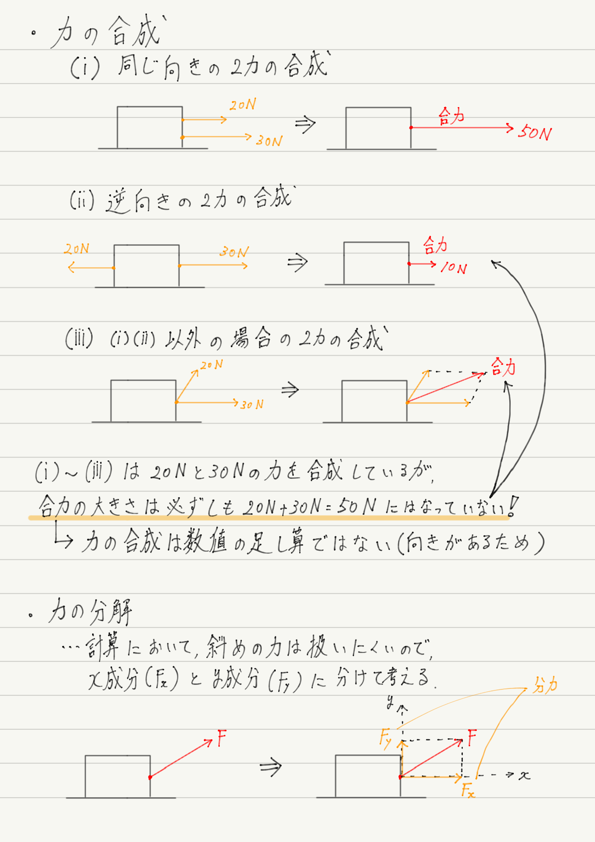 ・力の合成
(i) 同じ向きの2力の合成
20N
30N
⇒
合力
50N
(ii) 逆向きの2力の合成
20N
30N
⇒
合力
10N
(iii) (i)(ii)以外の場合の2力の合成
20N
30N
⇒
合力
(i)~(iii)は20Nと30Nの力を合成しているが,
合力の大きさは必ずしも20N+30N=50Nにはなっていない!
↳力の合成は数値の足し算ではない(向きがあるため)
・力の分解
…計算において,斜めの力は扱いにくいので,
x成分(Fx)とy成分(Fy)に分けて考える.
F
⇒
y
分力
Fy
F
x
Fx